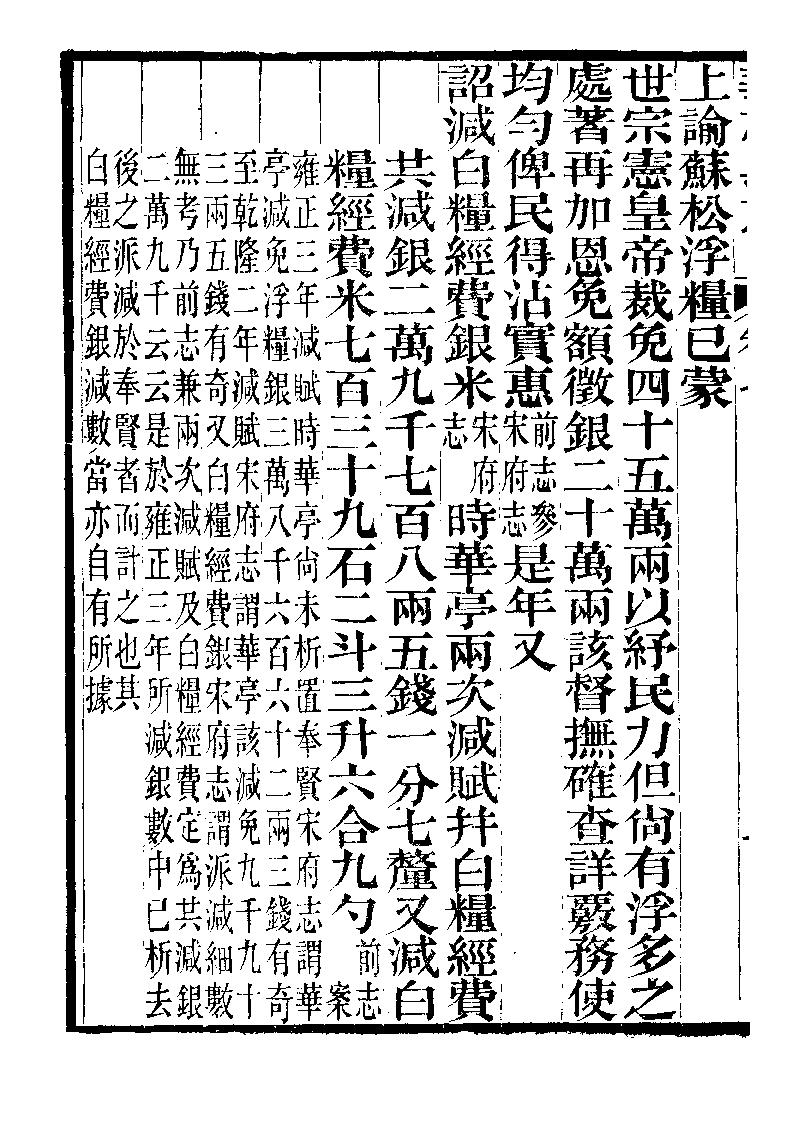 上諭蘇松浮糧已蒙
世宗憲皇帝裁免四十五萬兩以紓民力但尙有浮多之
處著再加恩免額徵銀二十萬兩該督撫確查詳覈務使
均勻俾民得沾實惠前志參宋府志是年又
詔減白糧經費銀米宋府志時華亭兩次減賦幷白糧經費
共減銀二萬九千七百八兩五錢一分七釐又減白
糧經費米七百三十九石二斗三升六合九勺前志案
雍正三年減賦時華亭尙未析置奉賢宋府志謂華
亭減免浮糧銀三萬八千六百六十二兩三錢有奇
至乾隆二年減賦宋府志謂華亭該減免九千九十
三兩五錢有奇又白糧經費銀宋府志謂派減細數
無考乃前志兼兩次減賦及白糧經費定爲共減銀
二萬九千云云是於雍正三年所減銀數中已析去
後之派減於奉賢者而計之也其
白糧經費銀減數當亦自有所據